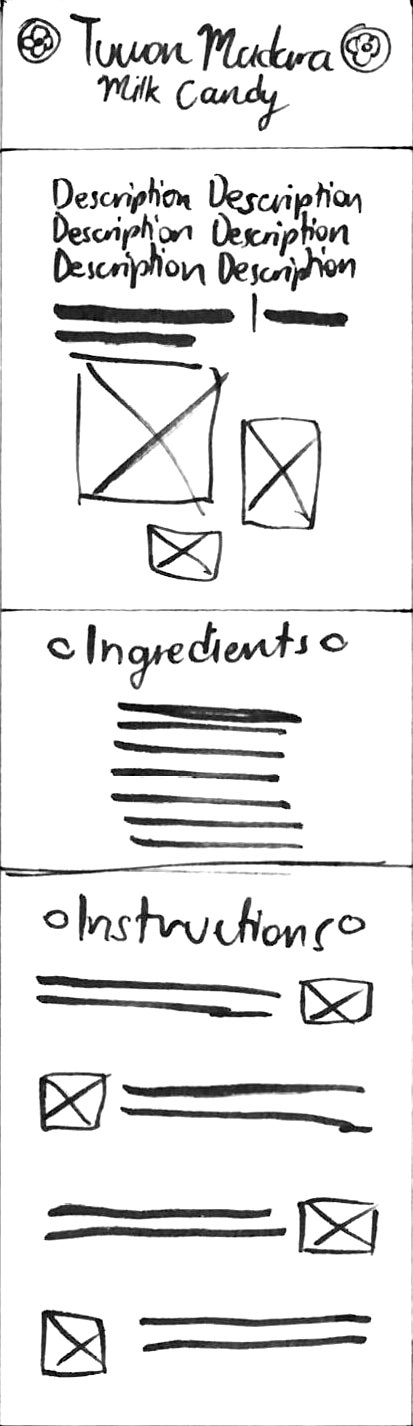 Tuwon Madara
Milk Candy
Description Description
Description Description
Description Description
Ingredients
Instructions